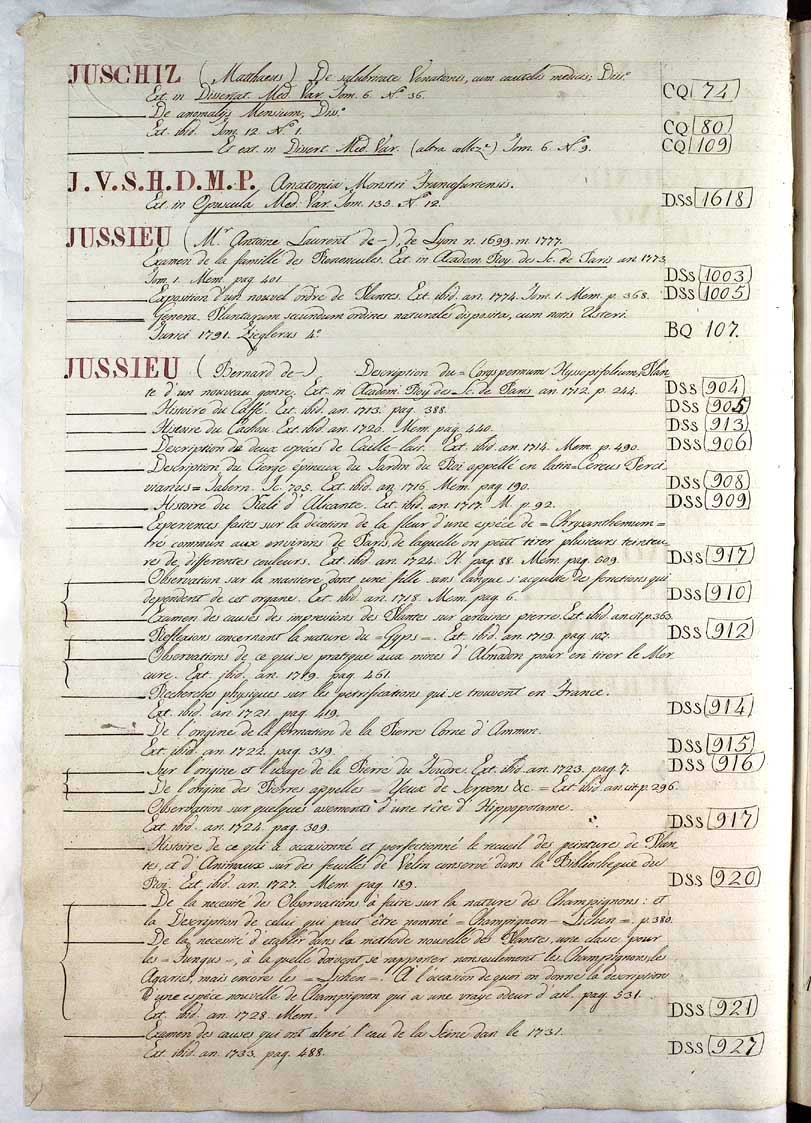 JUSCHIZ (Matthaeus) De salubritate Venationis, cum cautelis medicis; Diss.e
Ext. in Dissertat. Med. Var. Tom. 6. N.o 36. CQ 74
De anomalijs Mensium, Diss.e
Ext. ibid. Tom. 12. N.o 1. CQ 80
Et ext. in Dissert. Med. Var. (altra collez.e) Tom. 6. N.o 9. CQ 109
J.V.S.H.D.M.P. Anatomia Monstri Francfurtensis.
Ext. in Opuscula Med. Var. Tom. 135. N.o 12. DSS 1618
JUSSIEU (M.r Antoine Laurent de-), de Lyon n. 1699. m. 1777.
Examen de la famille des Renoncules. Ext. in Academ. Roy. des Sc. de Paris an. 1773.
Tom. 1. Mem. pag. 401. DSs 1003
Exposition d'un nouvel ordre de Plantes. Ext. ibid. an. 1774. Tom. 1. Mem. p. 368. DSs 1005
Genera Plantarum secundum ordines naturales disposita, cum notis Usteri.
Turici 1791. Zieglerus 4.o BQ 107.
JUSSIEU (Bernard de-) Description du = Coryspermum Hyssopifolium, Plan
te d'un nouveau genre. Ext. in Academ. Roy. des Sc. de Paris an. 1712. p. 244. DSs 904
Histoire du Caffé. Ext. ibid. an. 1713. pag. 388. DSs 905
Histoire du Cachou. Ext. ibid. an. 1720. Mem. pag. 440. DSs 913
Description de deux especes de Caille-lait. Ext. ibid. an. 1714. Mem. p. 490. DSs 906
Description du Cierge épineux du Jardin du Roi appellé en latin = Cereus Peru
vianus = Tabern. Ic. 705. Ext. ibid. an. 1716. Mem. pag. 190. DSs 908
Histoire du Kali d'Alicante. Ext. ibid. an. 1717. M. p. 92. DSs 909
Experiences faites sur la décotion de la fleur d'une espéce de = Chrysanthemum =
tre commun aux environs de Paris, de laquelle on peut tirer plusieurs teintu
res de differentes couleurs. Ext. ibid. an. 1724. H. pag. 88. Mem. pag. 609. DSs 917
Observation sur la maniere dont une fille sans langue s'acquite des fonctions qui
dependent de cet organe. Ext. ibid. an. 1718. Mem. pag. 6. DSs 910
Examen des causes des impressions des Plantes sur certaines pierre. Ext. ibid. an. cit. p. 363.
Reflexions concernant la nature du = Gyps =. Ext. ibid. an. 1719. pag. 107. DSs 912
Observations de ce qui se pratique aux mines d'Almaden pour en tirer le Mer
cure. Ext. ibid. an. 1719. pag. 461.
Recherches physiques sur les petrifications qui se trouvent en France.
Ext. ibid. an. 1721. pag. 419. DSs 914
De l'origine de la formation de la Pierre Corne d'Ammon.
Ext. ibid. an. 1722. pag. 319. DSs 915
Sur l'origine et l'usage de la Pierre du Foudre. Ext. ibid. an. 1723. pag. 7. DSS 916
De l'origine des Pierres appelles = Yeux de Serpens &c. = Ext. ibid. an. cit. p. 296.
Observation sur quelques ossements d'une tête d'Hippopotame.
Ext. ibid. an. 1724. pag. 309. DSs 917
Histoire de ce qui a occasionné et perfectionné le recueil des peintures de Plan
tes, et d'Animaux sur des feuilles de Velin conservé dans la Bibliotheque du
Roi. Ext. ibid. an. 1727. Mem. pag. 189. DSs 920
De la necesité des Observations à faire sur la nature des Champignons: et
la Description de celui qui peut être nommé = Champignon - Lichen =. p. 380.
De la necesité d'établir dans la methode nouvelle des Plantes, une classe pour
les = Fungus =, à la quelle doivent se rapporter nonseulement les Champignons, les
Agarics, mais encore les = Lichen =. A l'occasion de quoi on donne la description
d'une espéce nouvelle de Champignon qui a une vraye odeur d'ail. pag. 531.
Ext. ibid. an. 1728. Mem. DSs 921
Examen des causes qui ont alteré l'eau de la Seine dan le 1731.
Ext. ibid. an. 1733. pag. 488. DSs 927